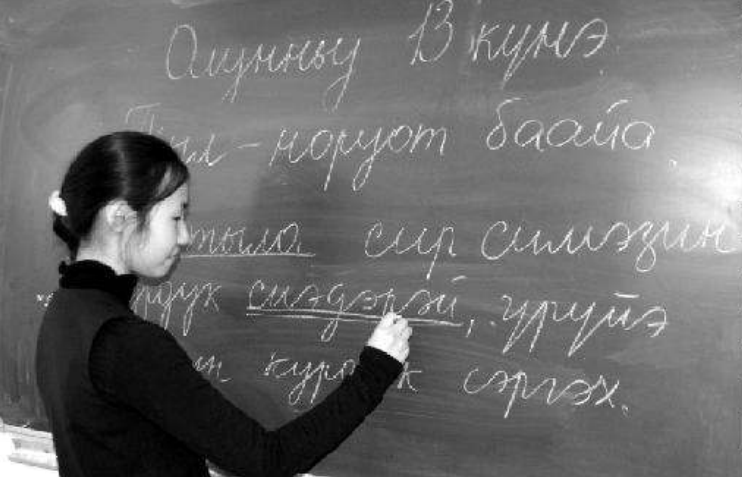 Олунньу 13 күнэ.
Тыл – норуот баайа
тыла сир симэҕин
курдук сиэдэрэй, үрүйэ
курдук сэргэх.